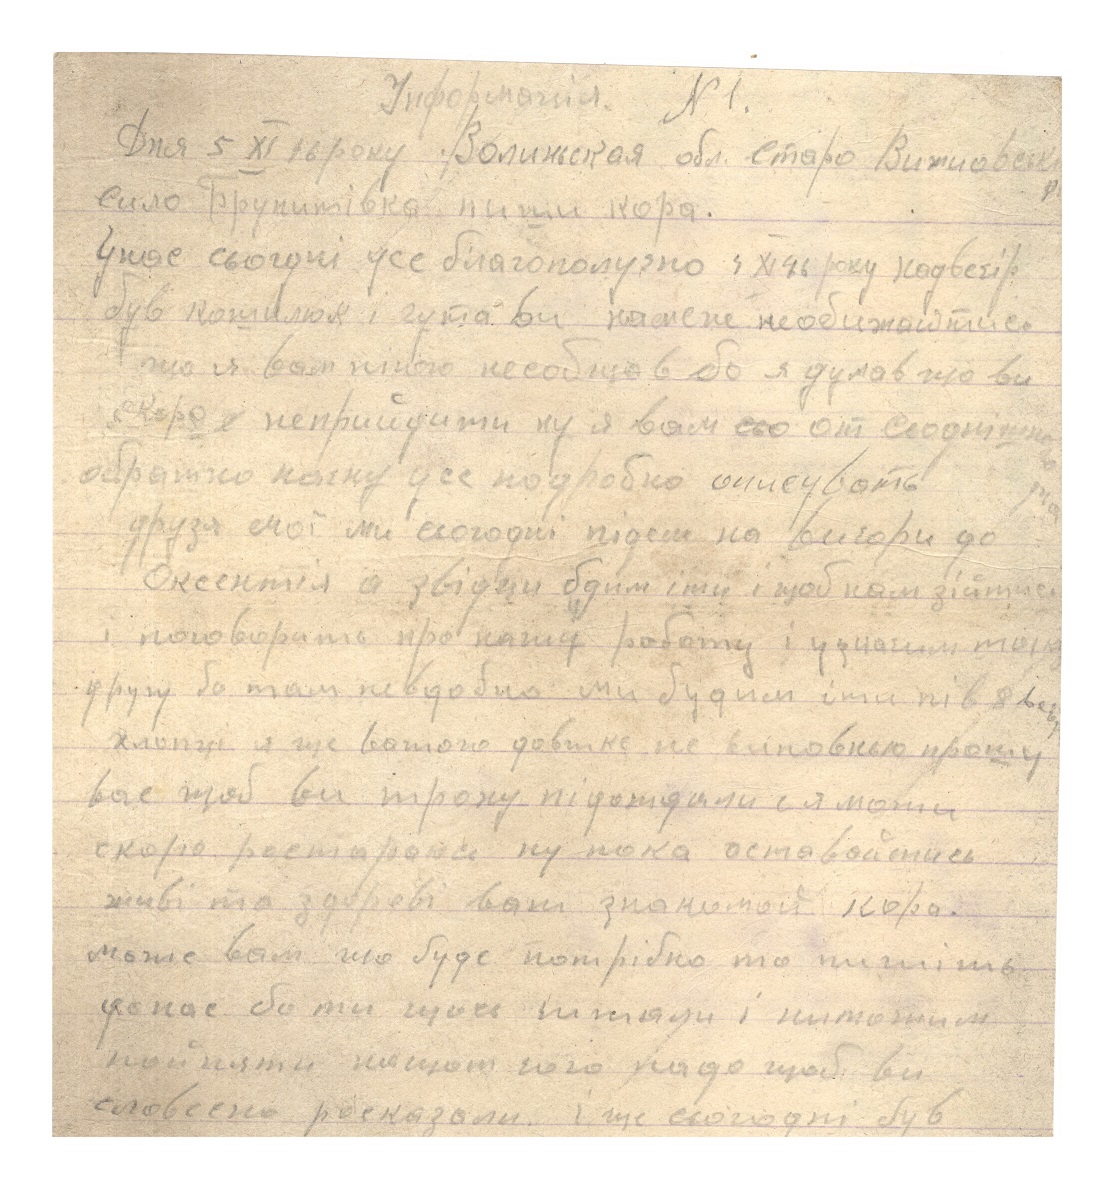 Інформація. N 1.
Дня 5 XI 46 року Волиньская обл. Старо Вижновськ
село Грушитівка пиши кора.
Унас сьогдні усе благополучно 4 XI 46 року надвечір
був кошилюк і гута ви намене необижайтис.
що я вам нічого несобщав бо я думав що ви
скоро неприйдити ну я вам от сьодні
обратно начну усе подробно описувать
друзя мої ми сьогодні підем на вигори до
Оксентія а звідци бдим іти і щоб нам зійтис
і поговорить про нашу роботу і узначим
другу бо там невдобно ми будим іти пів 8 веч
хлопці я ще вашого не виповнью прошу
вас щоб ви троху підождали
скоро ростарою ну пока оставайтись
живі та здорові ваш знакомой Кора.
може вам що буде потрібно то пишіть
донас бо ти щось і неможим
пойняти нащот чого надо щоб ви
словесно росказали. і ще сьогодні був